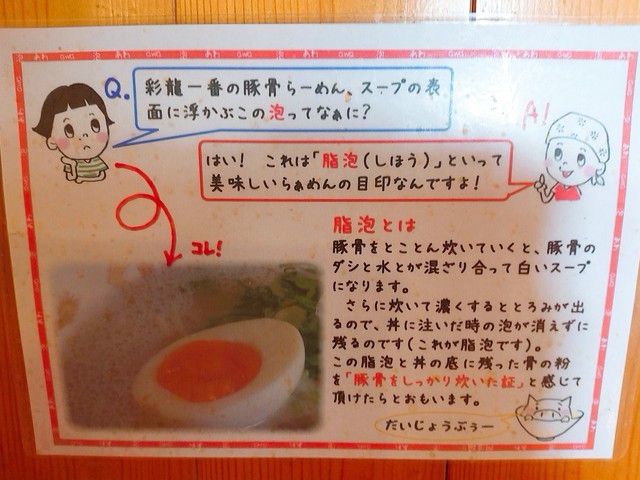 Q.
彩龍一番の豚骨らーめん、スープの表
面に浮かぶこの泡ってなぁに?
A!
はい! これは「脂泡(しほう)」といって
美味しいらぁめんの目印なんですよ!
コレ!
脂泡とは
豚骨をとことん炊いていくと、豚骨の
ダシと水とが混ざり合って白いスープ
になります。
さらに炊いて濃くするととろみが出
るので、丼に注いだ時の泡が消えずに
残るのです(これが脂泡です)。
この脂泡と丼の底に残った骨の粉
を「豚骨をしっかり炊いた証」と感じて
頂けたらとおもいます。
だいじょうぶぅー